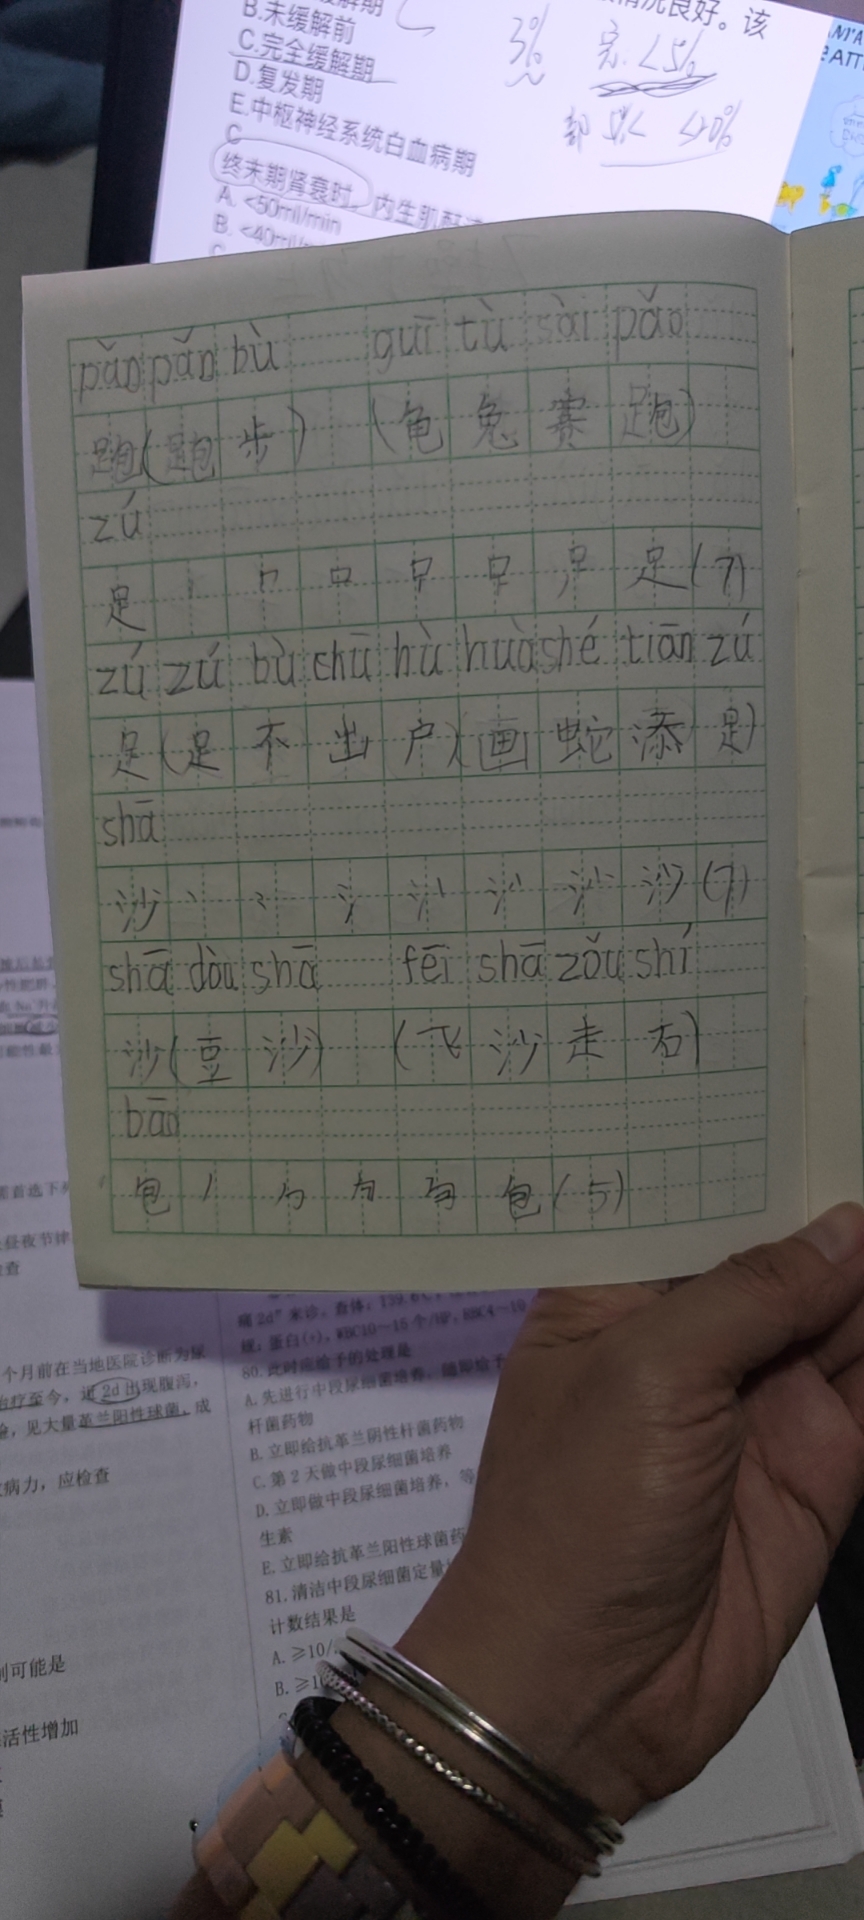 B.未缓解前
C.完全缓解期
D.复发期
E.中枢神经系统白血病期
C
终末期肾衰时，内生肌酐
A. <50ml/min
B. <40ml/
情况良好。该
3%
完:<5%
<20%
pǎo pǎo bù guī tù sài pǎo
跑(跑步) (龟兔赛跑)
zú
足 丨 口 足(7)
zú zú bù chū hù huà shé tiān zú
足(足不出户)(画蛇添足)
shā
沙 丶 冫 氵 沙(7)
shā dòu shā fēi shā zǒu shí
沙(豆沙) (飞沙走石)
bāo
包 丿 勹 包(5)
首选下列
昼夜节律
检查
个月前在当地医院诊断为尿
治疗至今，近2d出现腹泻，
见大量革兰阳性球菌，成
病力，应检查
别可能是
活性增加
痛2d”来诊。查体：T39.
规：蛋白(+)，WBC10～15个/HP，RBC4～10
80.此时应给予的处理是
A.先进行中段尿细菌培养，随即给予
杆菌药物
B.立即给抗革兰阴性杆菌药物
C.第2天做中段尿细菌培养
D.立即做中段尿细菌培养，等
生素
E.立即给抗革兰阳性球菌药
81.清洁中段尿细菌定量
计数结果是
A.≥10/
B.≥1